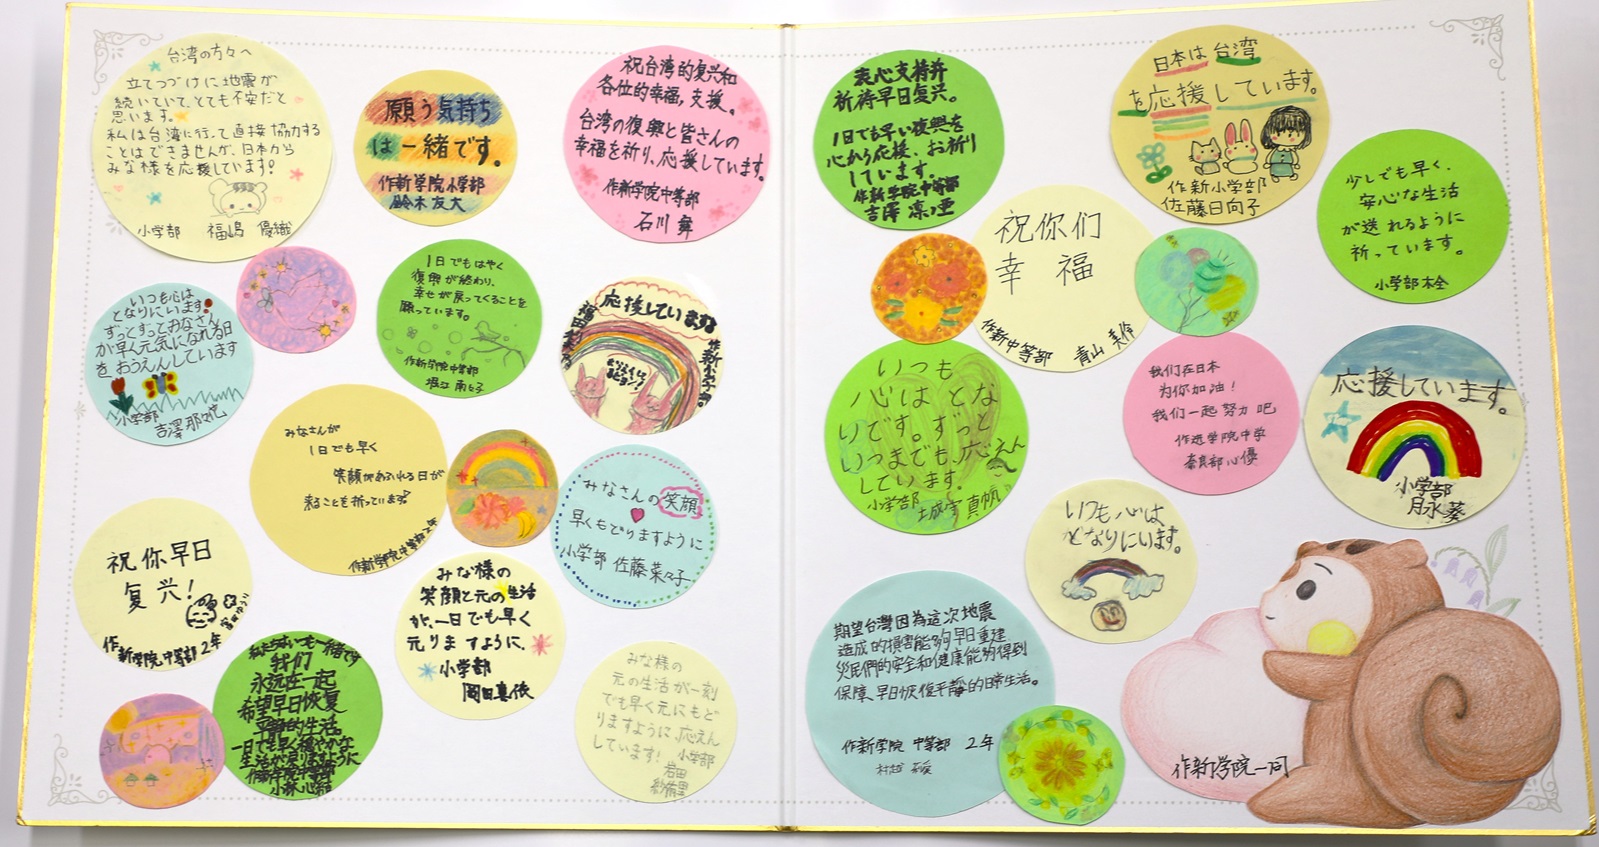 台湾の方々へ
立てつづけに地震が
続いていて、とても不安だと
思います。
私は台湾に行って直接協力する
ことはできませんが、日本から
みな様を応援しています!
小学部 福嶋 優織
願う気持ち
は一緒です。
作新学院小学部
鈴木友大
祝台湾的复兴和
各位的幸福,支援。
台湾の復興と皆さんの
幸福を祈り、応援しています。
作新学院中等部
石川 舞
いつも心は
となりにいます!
ずっとずっとみなさん
が早く元気になれる日
をおうえんしています
小学部
吉澤
1日でもはやく
復興が終わり、
幸せが戻ってくることを
願っています。
作新学院中等部
堀江
応援しています
みなさんが
1日でも早く
笑顔があふれる日が
来ることを祈っています
作新学院中等部2年
みなさんの笑顔
早くもどりますように
小学部 佐藤菜々子
祝你早日
复兴!
作新学院中等部2年
私たちはいつも一緒です
我们
永远在一起
希望早日恢复
平静的生活。
一日でも早く穏やかな
生活が戻りますように
作新学院中等部
小林心結
みな様の
笑顔と元の生活
が、一日でも早く
元りますように、
小学部
岡田真依
みな様の
元の生活が一刻
でも早く元にもど
りますように、応えん
しています! 小学部
岩田
紗佑里
衷心支持并
祈祷早日复兴。
1日でも早い復興を
心から応援、お祈り
しています。
作新学院中等部
吉澤 凛亜
日本は台湾
を応援しています。
作新小学部
佐藤日向子
少しでも早く、
安心な生活
が送れるように
祈っています。
小学部
祝你们
幸 福
作新中等部 青山 美怜
いつも
心はとな
りです。ずっと
いつまでも、応えん
しています。
小学部 真帆
我们在日本
为你加油!
我们一起努力吧
作新学院中学
奈良部心優
応援しています。
小学部
月永 葵
いつも心は
となりにいます。
期望台灣因為這次地震
造成的損害能夠早日重建
災民們的安全和健康能夠得到
保障、早日恢復平靜的日常生活。
作新学院 中等部 2年
村越
作新学院一同